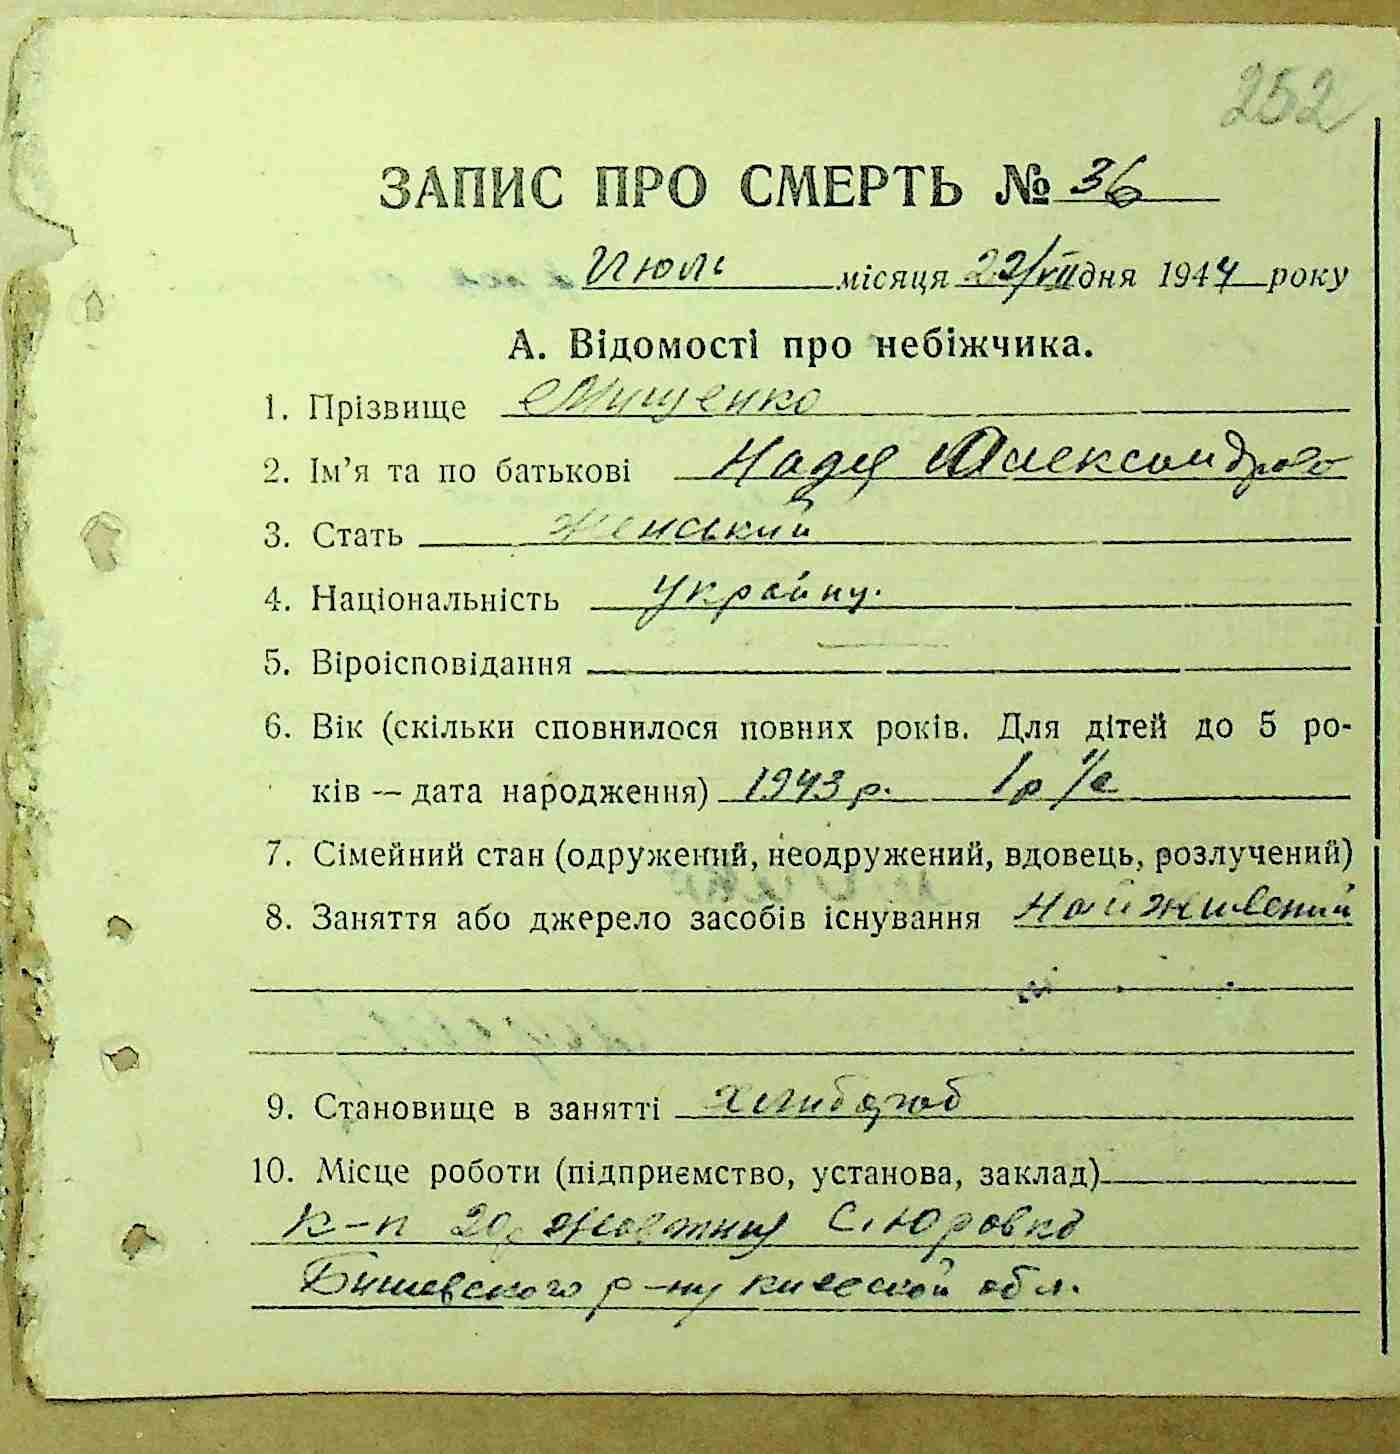 252
ЗАПИС ПРО СМЕРТЬ № 36
Июль місяця 22/VII дня 1944 року
А. Відомості про небіжчика.
1. Прізвище Мищенко
2. Ім'я та по батькові Надя Александров
3. Стать женський
4. Національність украйну.
5. Віроісповідання
6. Вік (скільки сповнилося повних років. Для дітей до 5 ро-
ків — дата народження) 1943 р. 1 р
7. Сімейний стан (одружений, неодружений, вдовець, розлучений)
8. Заняття або джерело засобів існування
9. Становище в занятті хлибороб
10. Місце роботи (підприємство, установа, заклад)
к-п 20, жовтня С. Юровка
Бишевского р-ну киевской обл.